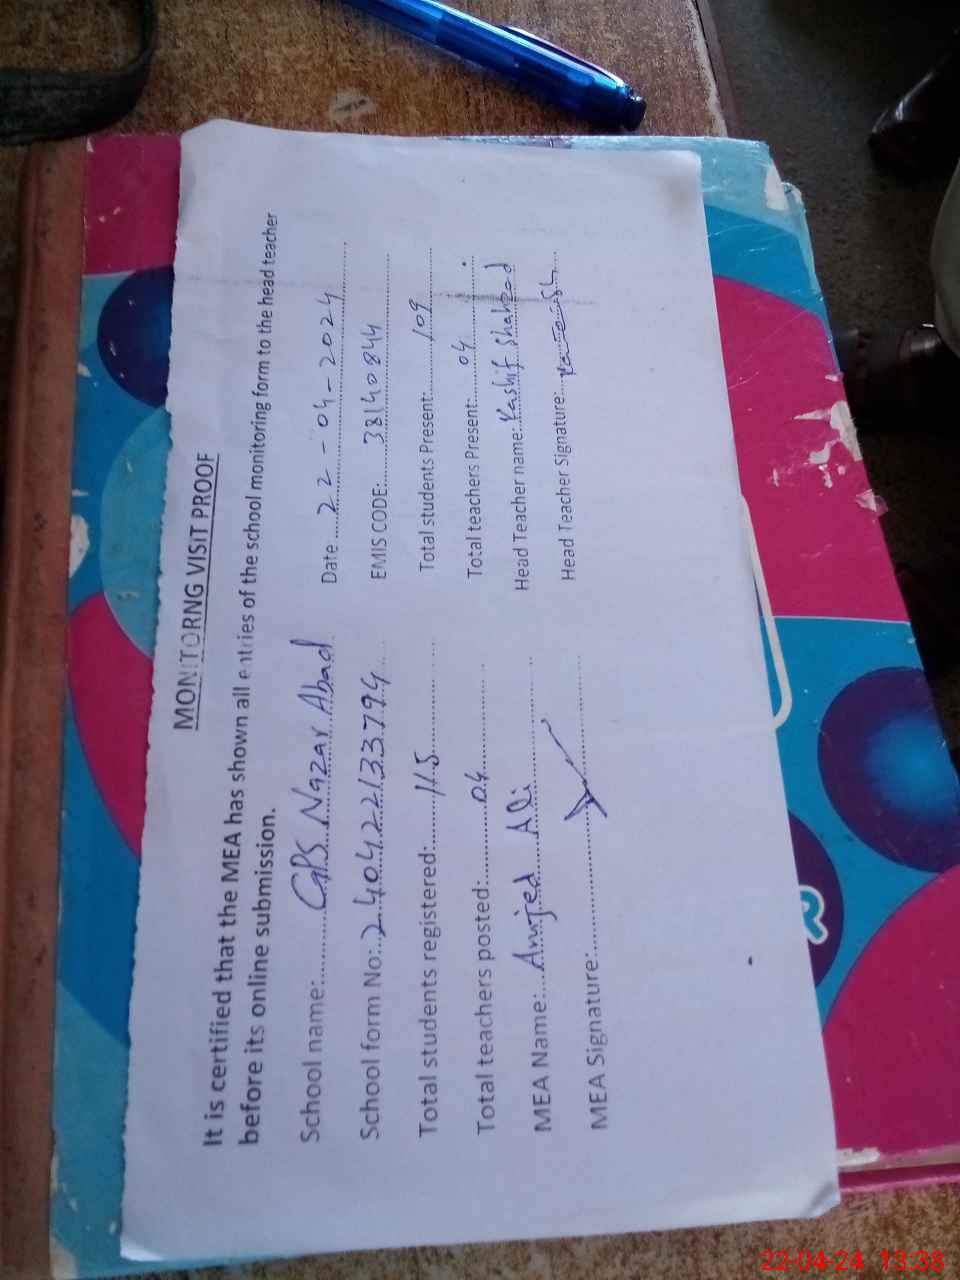 MONITORNG VISIT PROOF
It is certified that the MEA has shown all entries of the school monitoring form to the head teacher
before its online submission.
School name:.......GPS Nazar Abad.. Date....22-04-2024
School form No:..240422133794 EMIS CODE:......38140844
Total students registered:.......115 Total students Present:........109
Total teachers posted:.........04 Total teachers Present:......04
MEA Name:....Amjed Ali Head Teacher name:..Kashif Shahzad
MEA Signature: Head Teacher Signature:
22-04-24 13:38